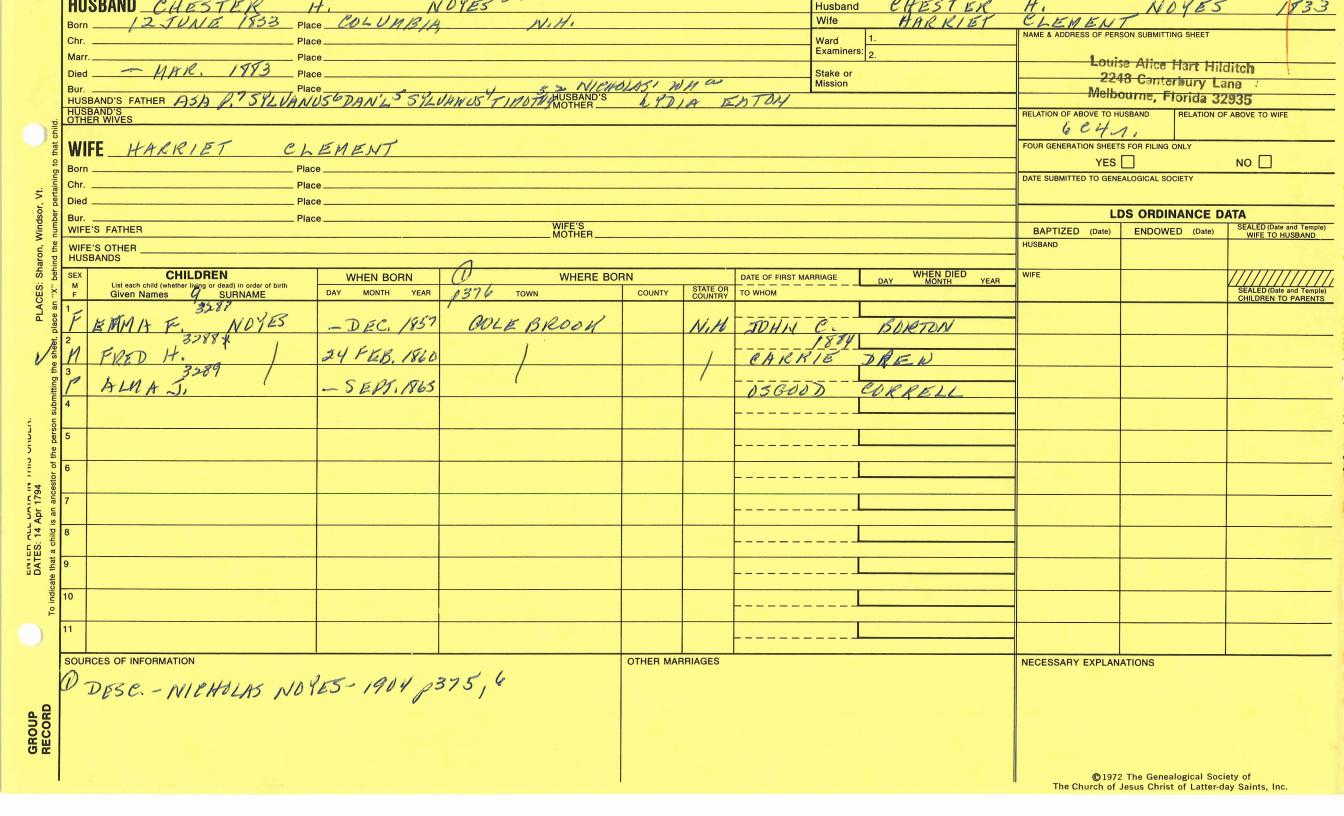 HUSBAND CHESTER H. NOYES
Born 12 JUNE 1833 Place COLUMBIA, N.H.
Chr. Place
Marr. Place
Died — MAR. 1883 Place
Bur. Place
HUSBAND'S FATHER ASA P.7 SYLVANUS6 DAN'L5 SYLVANUS4 TIMOTHY3,2 NICHOLAS1 WMa HUSBAND'S MOTHER LYDIA EATON
HUSBAND'S OTHER WIVES
Husband CHESTER H. NOYES 1833
Wife HARRIET CLEMENT
Ward Examiners: 1.
2.
Stake or Mission
NAME & ADDRESS OF PERSON SUBMITTING SHEET
Louise Alice Hart Hilditch
2243 Canterbury Lane
Melbourne, Florida 32935
RELATION OF ABOVE TO HUSBAND RELATION OF ABOVE TO WIFE
6C4r.
FOUR GENERATION SHEETS FOR FILING ONLY
YES NO
DATE SUBMITTED TO GENEALOGICAL SOCIETY
WIFE HARRIET CLEMENT
Born Place
Chr. Place
Died Place
Bur. Place
WIFE'S FATHER WIFE'S MOTHER
WIFE'S OTHER HUSBANDS
LDS ORDINANCE DATA
BAPTIZED (Date) ENDOWED (Date) SEALED (Date and Temple) WIFE TO HUSBAND
HUSBAND
WIFE
SEALED (Date and Temple) CHILDREN TO PARENTS
SEX M F
CHILDREN
List each child (whether living or dead) in order of birth
Given Names 9 SURNAME
WHEN BORN
DAY MONTH YEAR
① p376
WHERE BORN
TOWN COUNTY STATE OR COUNTRY
DATE OF FIRST MARRIAGE
TO WHOM
WHEN DIED
DAY MONTH YEAR
3287
1 F EMMA F. NOYES — DEC. 1857 COLEBROOK N.H JOHN C. BORTON
3288+ 1884
2 M FRED H. 24 FEB. 1860 CARRIE DREW
3289
3 F ALMA J. — SEPT. 1865 OSGOOD CORRELL
4
5
6
7
8
9
10
11
SOURCES OF INFORMATION
① DESC. - NICHOLAS NOYES - 1904 p375, 6
OTHER MARRIAGES
NECESSARY EXPLANATIONS
©1972 The Genealogical Society of
The Church of Jesus Christ of Latter-day Saints, Inc.
PLACES: Sharon, Windsor, Vt.
ENTER ALL DATA IN THIS ORDER:
DATES: 14 Apr 1794
To indicate that a child is an ancestor of the person submitting the sheet, place an "X" behind the number pertaining to that child.
GROUP RECORD